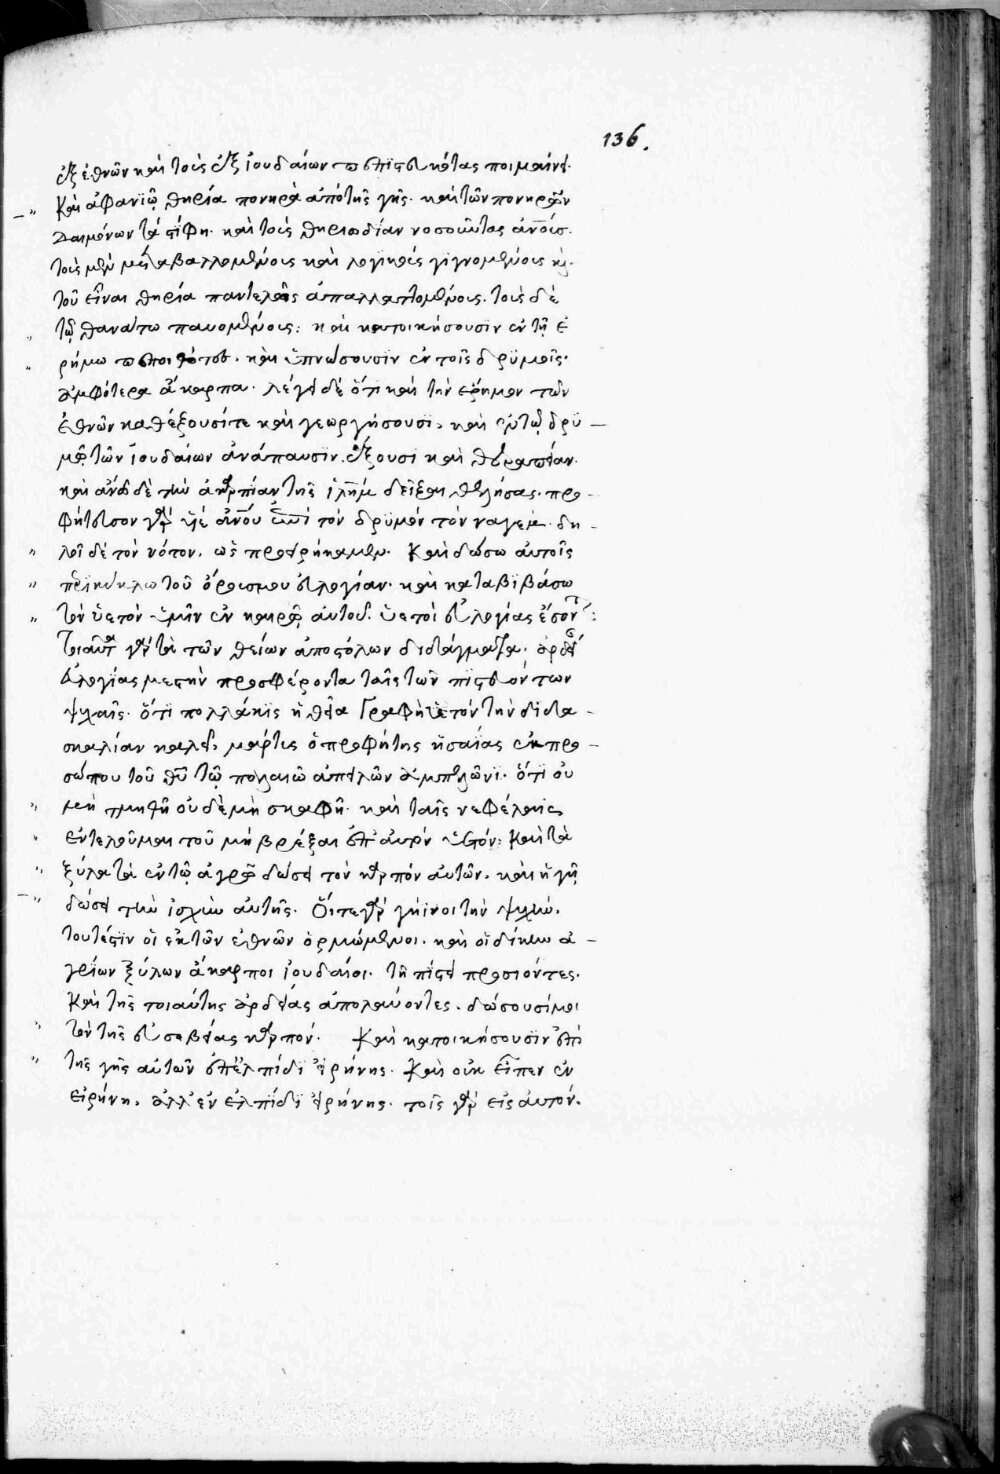 136.
ἐξ ἐθνῶν καὶ τοὺς ἐξ ἰουδαίων πεπιστευκότας ποιμαίνει.
Καὶ ἀφανϊῶ θηρία πονηρὰ ἀπὸ τῆς γῆς. καὶ τῶν πονηρῶν
δαιμόνων τὰ στίφη. καὶ τοὺς θηριωδίαν νοσοῦντας ἀνους.
τοὺς μὲν μεταβαλλομένους καὶ λογικοὺς γιγνομένους καὶ
τοῦ εἶναι θηρία παντελῶς ἀπαλλαττομένους. τοὺς δὲ
τῷ θανάτω παυομένους: καὶ κατοικήσουσιν ἐν τῇ ἐ
ρήμω πεποιθότες. καὶ ὑπνώσουσιν ἐν τοῖς δρϋμοῖς.
ἀμφότερα ἄκαρπα. λέγει δὲ ὅτι καὶ τὴν ἔρημον τῶν
ἐθνῶν καθέξουσί τε καὶ γεωργήσουσι, καὶ ἐν τῷ δρϋ -
μῷ τῶν ἰουδαίων ἀνάπαυσιν ἕξουσι καὶ θεραπείαν.
καὶ δὲ τὴν ἀκαρπίαν τῆς ἱλημ δεῖξαι θελήσας. προ -
φήτευσον γὰρ υἱὲ ἀνου ἐπὶ τὸν δρϋμὸν τὸν ναγεὲ. δη -
λοῖ δὲ τὸν νότον. ὡς προειρήκαμεν. Καὶ δώσω αὐτοῖς
περικύκλω τοῦ ὄρους μου εὐλογίαν. καὶ καταβϊβάσω
τὸν ὑετὸν ὑμῖν ἐν καιρῷ αὐτοῦ. ὑετοὶ εὐλογίας ἔσονται:
Τοιαῦτα γὰρ τὰ τῶν θείων ἀποστόλων διδάγματα.
εὐλογίας μεστὴν προσφέροντα ταῖς τῶν πϊστευόντων
ψυχαῖς. ὅτι πολλάκϊς ἡ θεία Γραφὴ ὑετὸν τὴν διδα -
σκαλίαν καλεῖ, μάρτυς ὁ προφήτης ἡσαΐας ἐκ προ -
σώπου τοῦ θῦ τῷ παλαιῶ ἀπειλῶν ἀμπελῶνϊ. ὅτι οὐ
μὴ τμηθῆ οὐδὲ μὴ σκαφῆ. καὶ ταῖς νεφέλαις
ἐντελοῦμαι τοῦ μὴ βρέξαι ἐπ' αυτὸν ὑετόν: Καὶ τὰ
ξύλα τὰ ἐν τῷ ἀγρῷ δώσει τὸν καρπὸν αὐτῶν. καὶ ἡ γῆ
δώσει τὴν ἰσχὺν αὐτῆς. Οἵ τε γὰρ γήϊνοι τὴν ψυχὴν.
τουτέστϊν οἱ ἐκ τῶν ἐθνῶν ὁρμώμενοι. καὶ οἱ δίκην ἀ -
γρίων ξύλων ἄκαρποι ἰουδαῖοι. τῇ πίστει προσιόντες.
Καὶ τῆς τοιαύτης ἀρδείας ἀπολαύοντες. δώσουσί μοι
τὸν τῆς εὐσεβείας καρπόν. Καὶ κατοικήσουσϊν ἐπὶ
τῆς γῆς αὐτῶν ἐπ' ἐλπίδι εἰρήνης. Καὶ οὐκ εἶπεν ἐν
εἰρήνη, ἀλλ' ἐν ἐλπίδϊ εἰρήνης. τοῖς γὰρ εἰς αὐτόν.